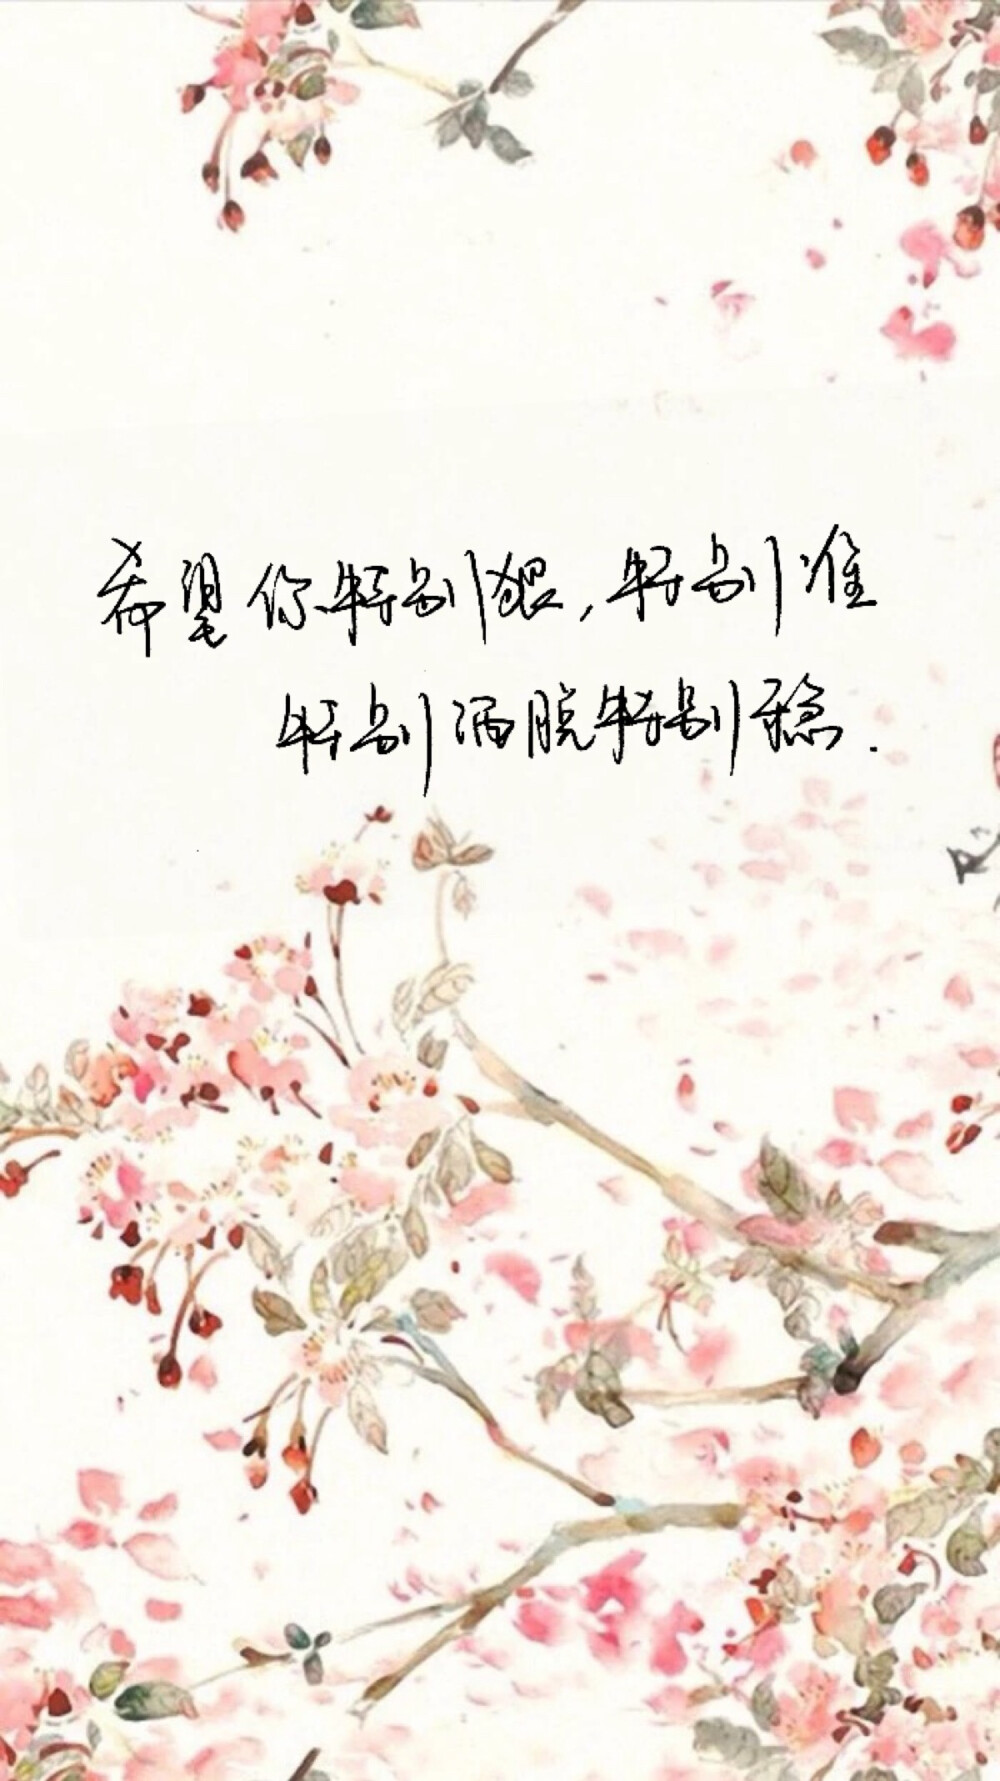 希望你特别狠,特别准
特别洒脱特别稳.